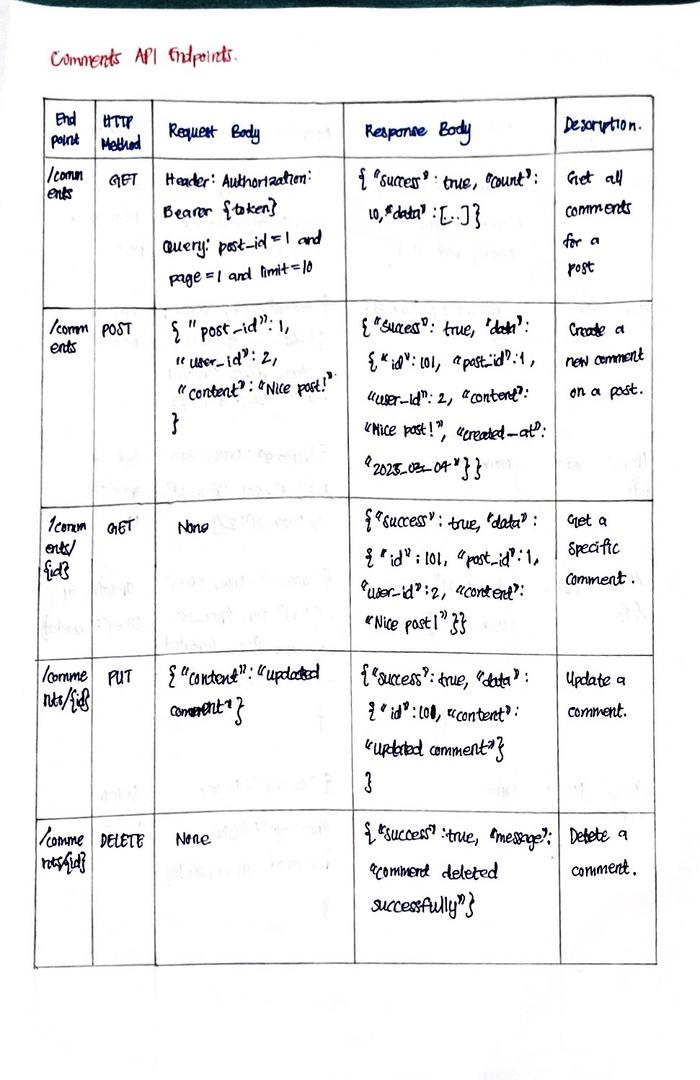 Comments API Endpoints.
End
point
HTTP
Method
Request Body
Response Body
Description.
/comm
ents
GET
Header: Authorization:
Bearer {token}
Query: post_id=1 and
page=1 and limit=10
{ "success": true, "count":
10, "data": [...] }
Get all
comments
for a
post
/comm
ents
POST
{ "post_id": 1,
"user_id": 2,
"content": "Nice post!"
}
{ "success": true, "data":
{ "id": 101, "post_id": 1,
"user_id": 2, "content":
"Nice post!", "created_at":
"2025-02-04" } }
Create a
new comment
on a post.
/comm
ents/
{id}
GET
None
{ "success": true, "data":
{ "id": 101, "post_id": 1,
"user_id": 2, "content":
"Nice post!" } }
Get a
specific
comment.
/comme
nts/{id}
PUT
{ "content": "updated
comment" }
{ "success": true, "data":
{ "id": 101, "content":
"updated comment" }
}
Update a
comment.
/comme
nts/{id}
DELETE
None
{ "success": true, "message":
"comment deleted
successfully" }
Delete a
comment.